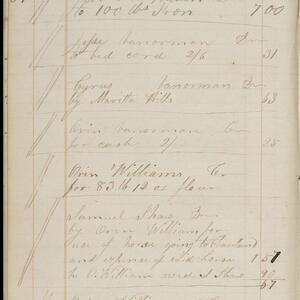 to 100 lbs Iron 7 00
Jesse Vanorman Dr
to bed cord 2/6 31
Cyrus Vanorman Dr
by Maritta Hills 63
Orin Vanorman Cr
for cash 2/ 25
Orin Williams Cr
for 83 lb 12 oz flour
Samuel Shaw Dr
by Orin Williams for
use of horse going to
and expense of said horse 1 57
to O. William owed S Shaw 90
67